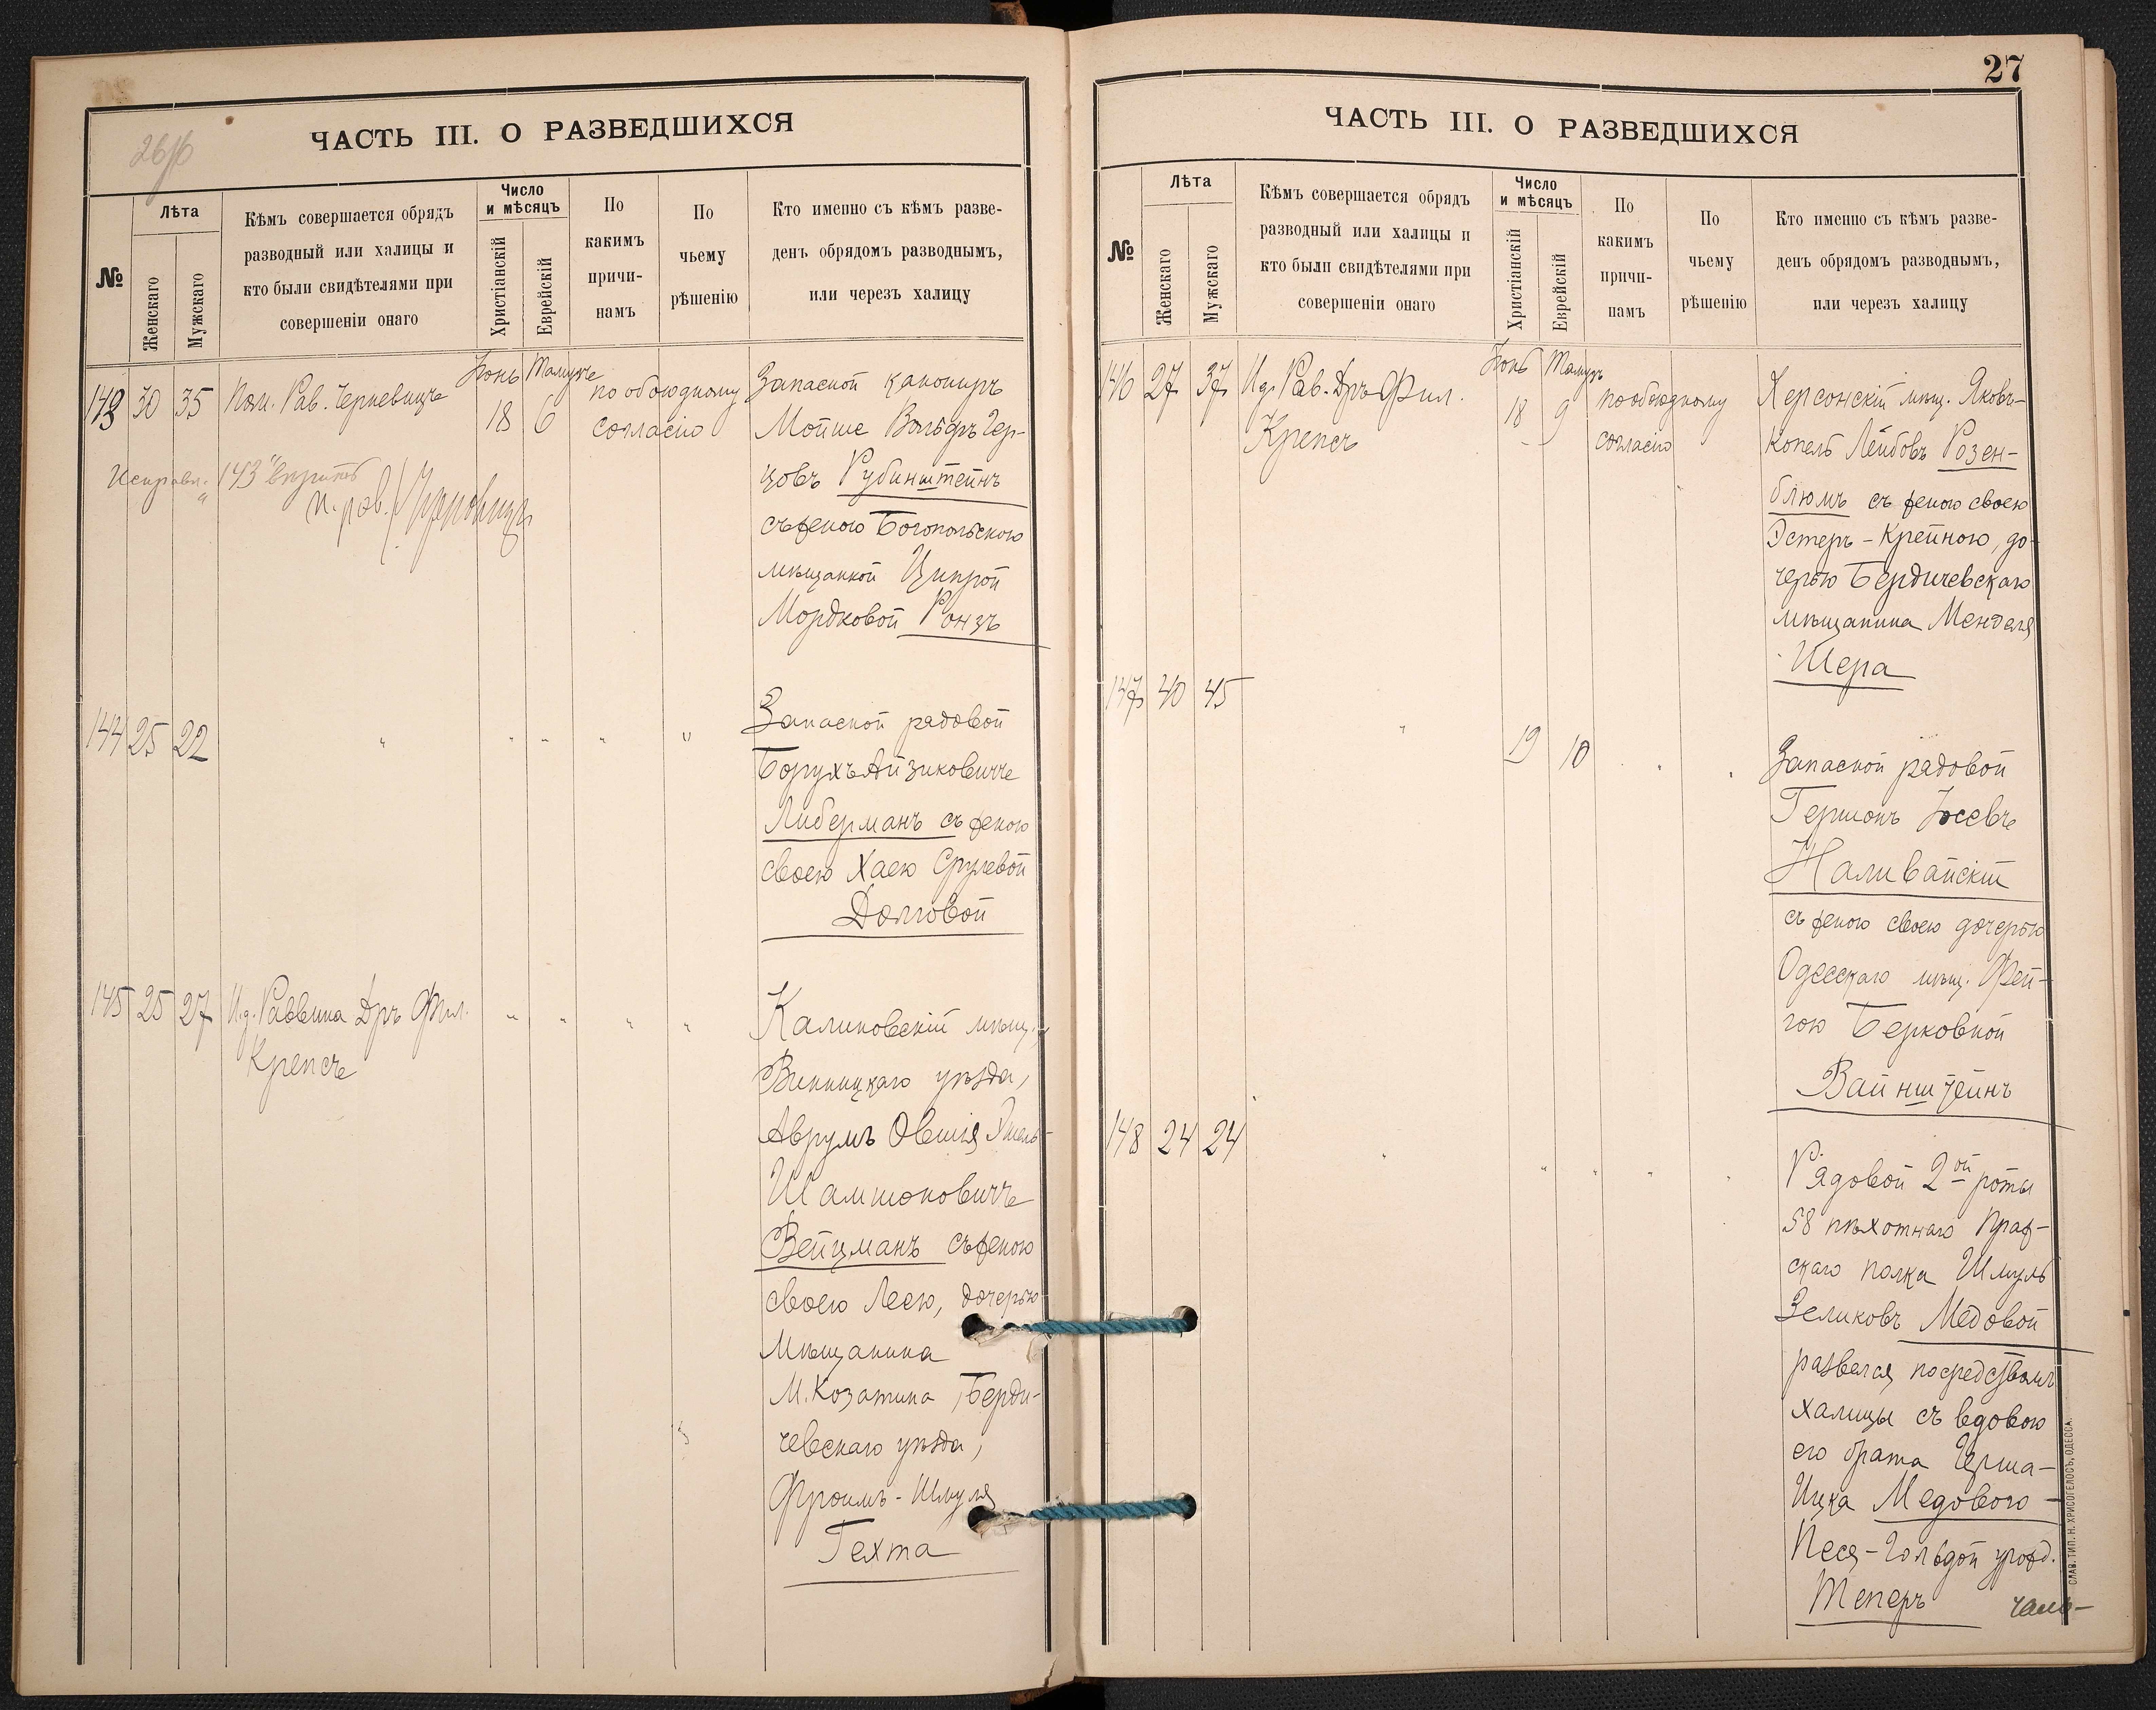 26 об
ЧАСТЬ III. О РАЗВЕДШИХСЯ
№
Лѣта
Женскаго
Мужскаго
Кѣмъ совершается обрядъ
разводный или халицы и
кто были свидѣтелями при
совершеніи онаго
Число
и мѣсяцъ
Христіанскій
Еврейскій
По
какимъ
причи-
намъ
По
чьему
рѣшенію
Кто именно съ кѣмъ разве-
денъ обрядомъ разводнымъ,
или черезъ халицу
143 30 35
Пом. Рав. Черневичъ
Іюнь Тамузъ
18 6
по обоюдному
согласію
Запасной канониръ
Мойше Вольфъ Гер-
цовъ Рубинштейнъ
съ женою Богопольскою
мѣщанкой Ципрой
Мордковой Ронзъ
Исправл. "143" вѣрить
п. рав.
144 25 22
" " " " "
Запасной рядовой
Борухъ Айзиковичъ
Либерманъ съ женою
своею Хаею Срулевой
Долговой
145 25 27
И.д. Раввина Дръ Фил.
Крепсъ
" " " "
Калиновскій мѣщ.,
Винницкаго уѣзда,
Аврумъ Овшія Хмель-
Шамшоновичъ
Вейцманъ съ женою
своею Леею, дочерью
Мѣщанина
М. Козатина, Берди-
чевскаго уѣзда,
Фроимъ-Шмуля
Гехта
27
ЧАСТЬ III. О РАЗВЕДШИХСЯ
№
Лѣта
Женскаго
Мужскаго
Кѣмъ совершается обрядъ
разводный или халицы и
кто были свидѣтелями при
совершеніи онаго
Число
и мѣсяцъ
Христіанскій
Еврейскій
По
какимъ
причи-
намъ
По
чьему
рѣшенію
Кто именно съ кѣмъ разве-
денъ обрядомъ разводнымъ,
или черезъ халицу
146 27 37
И.д. Рав. Дръ Фил.
Крепсъ
Іюнь Тамузъ
18 9
по обоюдному
согласію
Херсонскій мѣщ. Яковъ-
Копель Лейбовъ Розен-
блюмъ съ женою своею
Эстеръ-Крейною, до-
черью Бердичевскаго
мѣщанина Менделя
Шера
147 40 45
"
19 10
" "
Запасной рядовой
Гершонъ Іосевъ
Наливайскій
съ женою своею дочерью
Одесскаго мѣщ. Фей-
гою Берковной
Вайнштейнъ
148 24 24
" " " " "
Рядовой 2ой роты
58 пѣхотнаго Праж-
скаго полка Шмуль
Зеликовъ Медовой
развелся посредствомъ
халицы съ вдовою
его брата Герша-
Ицка Медового-
Песя-Гольдой урожд.
Теперъ
СЛАВ. ТИП. Н. ХРИСОГЕЛОСЪ, ОДЕССА.